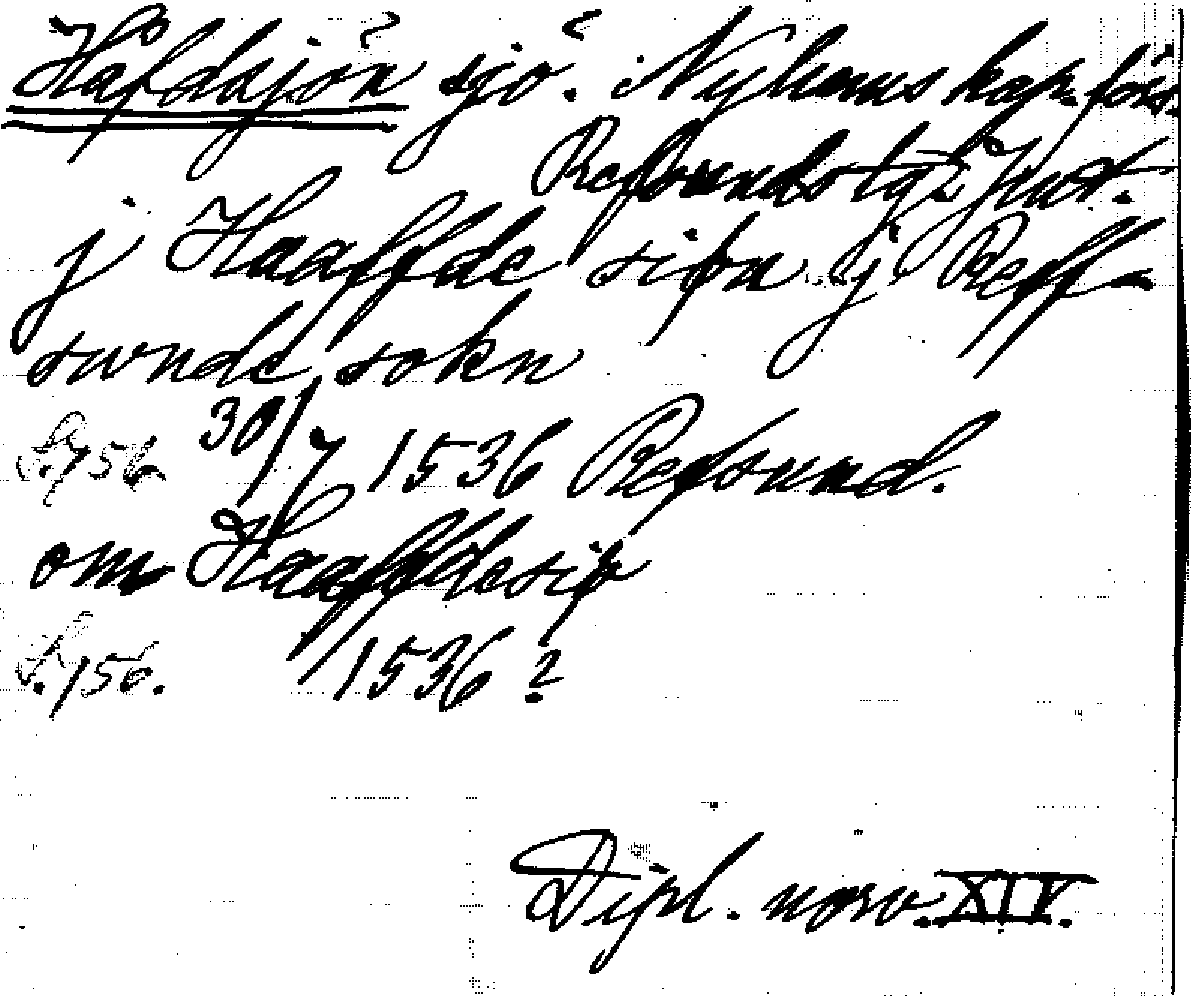 Håfdsjön sjö. Nyhems kap. förs.
Refsunds tg. Jmt.
j Haaffde siøn j Reff-
swnde sokn
S. 756 30/7 1536 Refsund.
om Haaffdesiø
S. 756. 1536?
Dipl. norv. XIV.